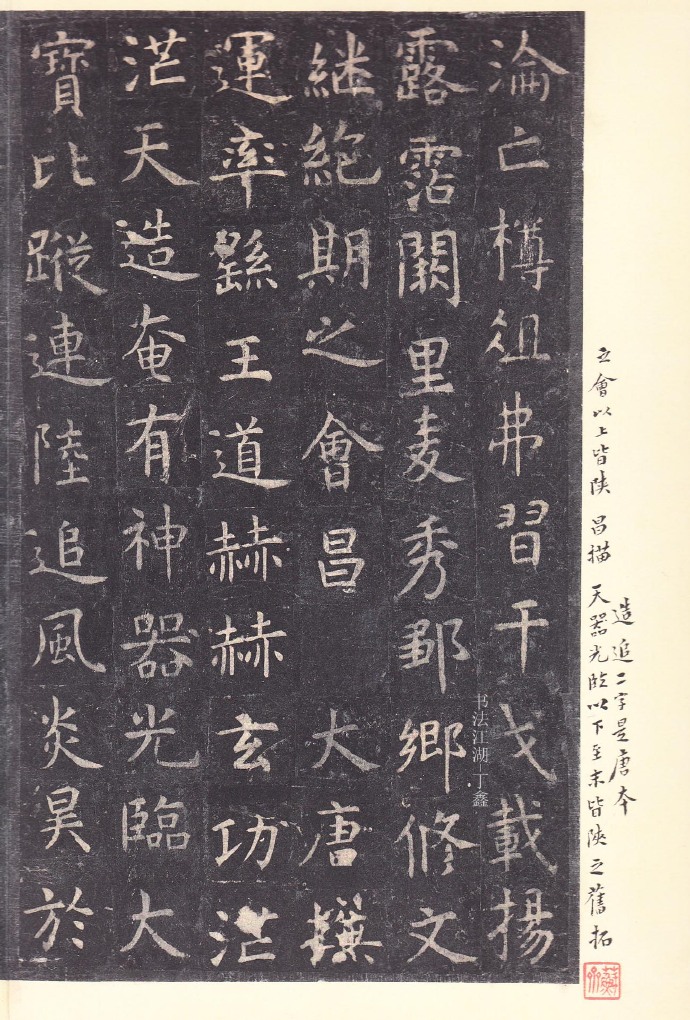 淪亡樽俎弗習干戈載揚
露霑闕里麦秀鄒鄉脩文
継絶期之會昌大唐撰
運率繇王道赫赫玄功茫
茫天造奄有神器光臨大
寶比蹤連陸追風炎昊於
立會以上皆陕
昌描
天器光臨以下至末皆陕之舊拓
造追二字是唐本
书法江湖 丁鑫